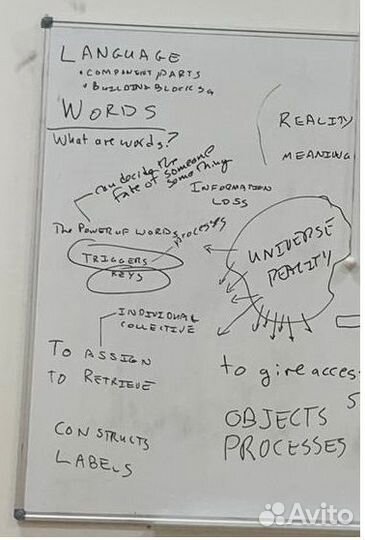 LANGUAGE
• COMPONENT PARTS
• BUILDING BLOCKS
WORDS
What are words?
can decide the
fate of someone
something
INFORMATION
LOSS
REALITY
MEANING
THE POWER OF WORDS
processes
TRIGGERS
KEYS
UNIVERSE
REALITY
INDIVIDUAL
COLLECTIVE
TO ASSIGN
TO RETRIEVE
to give acces
OBJECTS
PROCESSES
CONSTRUCTS
LABELS
Avito